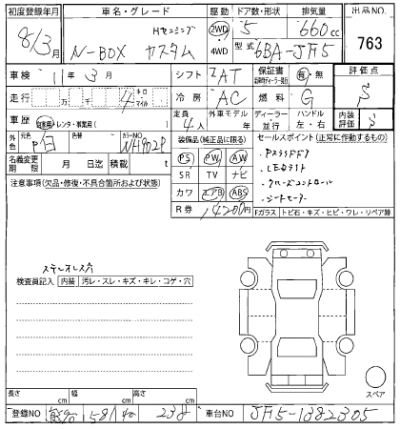 初度登録年月 車名・グレード 駆動 ドア数・形状 排気量 出品NO.
8/3月 N-BOX カスタム Hセンシング 2WD 4WD 5 660cc 763
型式 6BA-JF5
車検 11年3月 シフト AT 保証書 有・無 評価点 S
走行 万 千 4 キロ マイル 冷房 AC 燃料 G
車歴 自家用・レンタ・事業用( ) 定員 4人 外車モデル 年 ディーラー 並行 ハンドル 左・右 内装評価 S
外色 元色 白 色替 カラーNO NH902P 装備品(純正品に限る) セールスポイント(正常に作動するもの)
PS PW AW ・LEDライト
名義変更期限 月 日迄 積載 t SR TV ナビ ・クルーズコントロール
注意事項(欠品・修復・不具合箇所および状態) カワ エアB ABS ・シートヒーター
R券 Fガラス トビ石・キズ・ヒビ・ワレ・リペア跡
ステレオレス
検査員記入 内装 汚レ・スレ・キズ・キレ・コゲ・穴
スペア
長さ cm 幅 cm 高さ cm
登録NO 581 238 車台NO JF5-1382305